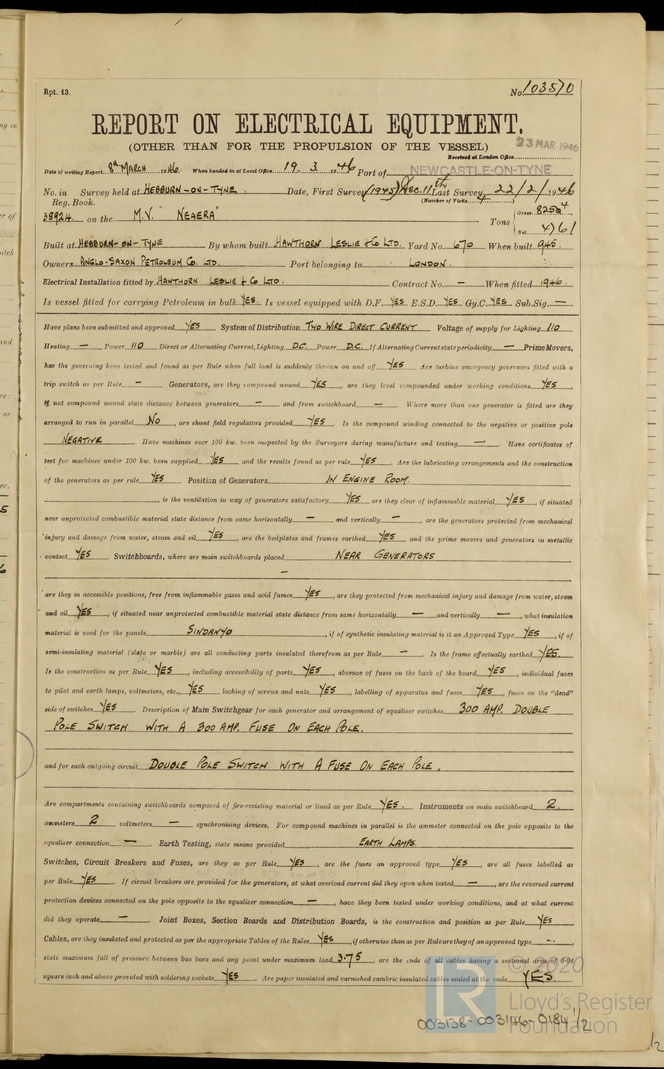 Rpt. 13.
No. 103510
REPORT ON ELECTRICAL EQUIPMENT.
(OTHER THAN FOR THE PROPULSION OF THE VESSEL)
23 MAR 1946
Received at London Office
Date of writing Report 8th MARCH 1946. When handed in at Local Office 19. 3. 1946 Port of NEWCASTLE-ON-TYNE
No. in Survey held at HEBBURN-ON-TYNE Date, First Survey (1945) DEC. 11th Last Survey 22/2/1946
Reg. Book. (Number of Visits 4)
38924 on the M.V. "NEAERA" Tons Gross 8254
Net 4761
Built at HEBBURN-ON-TYNE By whom built HAWTHORN LESLIE & CO LTD. Yard No. 670 When built 1945.
Owners ANGLO-SAXON PETROLEUM CO. LTD. Port belonging to LONDON.
Electrical Installation fitted by HAWTHORN LESLIE & CO LTD. Contract No. — When fitted 1946.
Is vessel fitted for carrying Petroleum in bulk YES. Is vessel equipped with D.F. YES E.S.D. YES Gy.C. YES Sub.Sig. —
Have plans been submitted and approved YES System of Distribution TWO WIRE DIRECT CURRENT Voltage of supply for Lighting 110
Heating — Power 110 Direct or Alternating Current, Lighting D.C. Power D.C. If Alternating Current state periodicity — Prime Movers,
has the governing been tested and found as per Rule when full load is suddenly thrown on and off YES Are turbine emergency governors fitted with a
trip switch as per Rule — Generators, are they compound wound YES, are they level compounded under working conditions YES,
if not compound wound state distance between generators — and from switchboard — Where more than one generator is fitted are they
arranged to run in parallel NO, are shunt field regulators provided YES Is the compound winding connected to the negative or positive pole
NEGATIVE Have machines over 100 kw. been inspected by the Surveyors during manufacture and testing — Have certificates of
test for machines under 100 kw. been supplied YES and the results found as per rule YES Are the lubricating arrangements and the construction
of the generators as per rule YES Position of Generators IN ENGINE ROOM
, is the ventilation in way of generators satisfactory YES are they clear of inflammable material YES, if situated
near unprotected combustible material state distance from same horizontally — and vertically —, are the generators protected from mechanical
injury and damage from water, steam and oil YES, are the bedplates and frames earthed YES and the prime movers and generators in metallic
contact YES Switchboards, where are main switchboards placed NEAR GENERATORS
—
are they in accessible positions, free from inflammable gases and acid fumes YES, are they protected from mechanical injury and damage from water, steam
and oil YES, if situated near unprotected combustible material state distance from same horizontally — and vertically —, what insulation
material is used for the panels SINDANYO, if of synthetic insulating material is it an Approved Type YES, if of
semi-insulating material (slate or marble) are all conducting parts insulated therefrom as per Rule — Is the frame effectually earthed YES.
Is the construction as per Rule YES, including accessibility of parts YES, absence of fuses on the back of the board YES, individual fuses
to pilot and earth lamps, voltmeters, etc. YES locking of screws and nuts YES, labelling of apparatus and fuses YES, fuses on the "dead"
side of switches YES Description of Main Switchgear for each generator and arrangement of equaliser switches 300 AMP. DOUBLE
POLE SWITCH WITH A 300 AMP. FUSE ON EACH POLE.
and for each outgoing circuit DOUBLE POLE SWITCH WITH A FUSE ON EACH POLE.
Are compartments containing switchboards composed of fire-resisting material or lined as per Rule YES. Instruments on main switchboard 2
ammeters 2 voltmeters — synchronising devices. For compound machines in parallel is the ammeter connected on the pole opposite to the
equaliser connection — Earth Testing, state means provided EARTH LAMPS.
Switches, Circuit Breakers and Fuses, are they as per Rule YES, are the fuses an approved type YES, are all fuses labelled as
per Rule YES If circuit breakers are provided for the generators, at what overload current did they open when tested —, are the reversed current
protection devices connected on the pole opposite to the equaliser connection —, have they been tested under working conditions, and at what current
did they operate — Joint Boxes, Section Boards and Distribution Boards, is the construction and position as per Rule YES
Cables, are they insulated and protected as per the appropriate Tables of the Rules YES, if otherwise than as per Rule are they of an approved type —,
state maximum fall of pressure between bus bars and any point under maximum load 3.75, are the ends of all cables having a sectional area of 0.04
square inch and above provided with soldering sockets YES Are paper insulated and varnished cambric insulated cables sealed at the ends YES
© 2020
Lloyd's Register
Foundation
003138-003146-0184 1/2